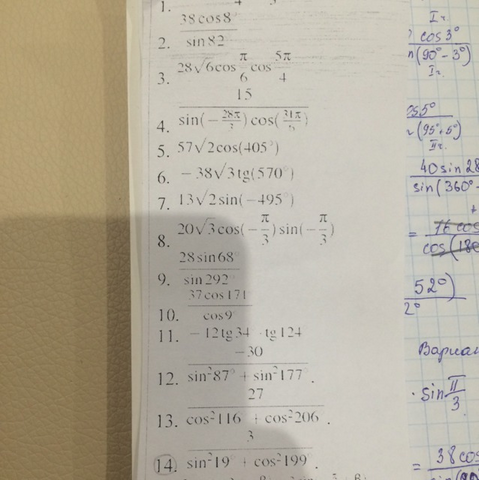 1.
2. \frac{38cos8°}{sin82°}
3. 28√6cos\frac{π}{6}cos\frac{5π}{4}
4. \frac{15}{sin(-\frac{28π}{3})cos(\frac{31π}{6})}
5. 57√2cos(405°)
6. -38√3tg(570°)
7. 13√2sin(-495°)
8. 20√3cos(-\frac{π}{3})sin(-\frac{π}{3})
9. \frac{28sin68°}{sin292°}
10. \frac{37cos171°}{cos9°}
11. -12tg34°·tg124°
12. \frac{-30}{sin²87° + sin²177°}.
13. \frac{27}{cos²116° + cos²206°}.
14. \frac{3}{sin²19° + cos²199°}.
Iг.
cos3°
n(90°-3°)
Iг.
cos5°
(95°+5°)
IIг.
40sin28
sin(360°-
+
= 76cos
cos(180
52°)
2°
Вариан
·sin\frac{π}{3}
= 38cos